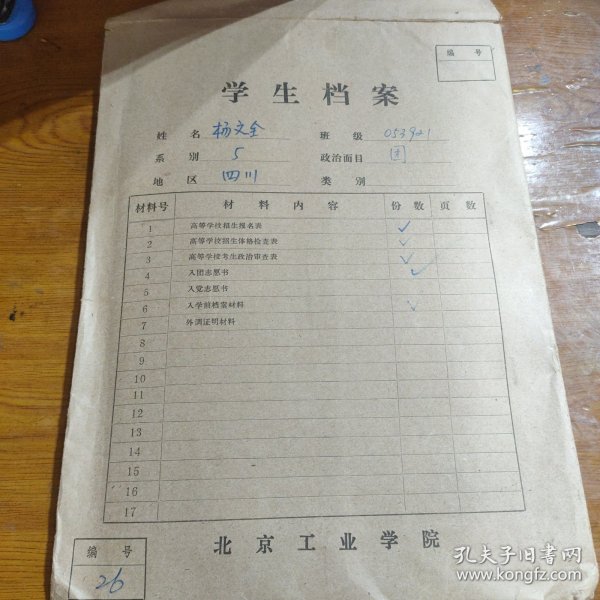 编 号
学生档案
姓 名 杨文全 班 级 053921
系 别 5 政治面目 团
地 区 四川 类 别
材料号 材料内容 份数 页数
1 高等学校招生报名表 ✓
2 高等学校招生体格检查表 ✓
3 高等学校考生政治审查表 ✓
4 入团志愿书 ✓
5 入党志愿书
6 入学前档案材料 ✓
7 外调证明材料
8
9
10
11
12
13
14
15
16
17
北京工业学院
编 号
26
孔夫子旧书网
www.kongfz.com